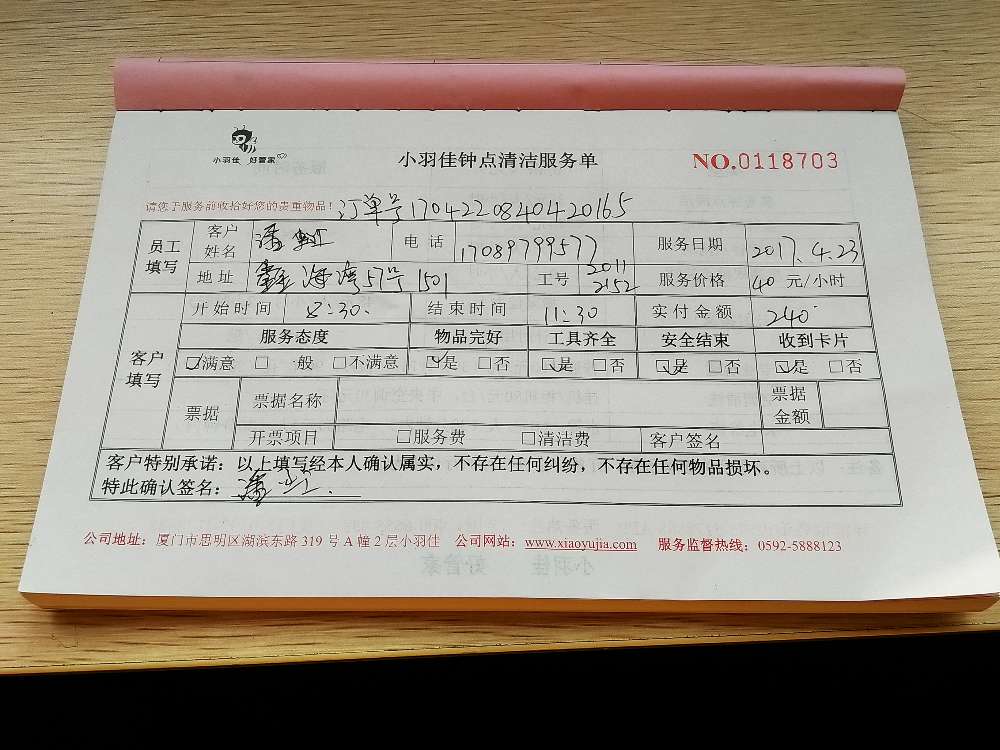 小羽佳 好管家
小羽佳钟点清洁服务单
NO.0118703
请您于服务前收拾好您的贵重物品！ 订单号1704220840420165
员工填写 客户姓名 潘 电话 17089799577 服务日期 2017.4.23
地址 海湾57号1501 工号 2011 2152 服务价格 40 元/小时
客户填写 开始时间 8:30. 结束时间 11:30 实付金额 240
服务态度 物品完好 工具齐全 安全结束 收到卡片
☑满意 □一般 □不满意 ☑是 □否 ☑是 □否 ☑是 □否 ☑是 □否
票据 票据名称 票据金额
开票项目 □服务费 □清洁费 客户签名
客户特别承诺：以上填写经本人确认属实，不存在任何纠纷，不存在任何物品损坏。
特此确认签名：潘
公司地址：厦门市思明区湖滨东路 319 号 A 幢 2 层小羽佳 公司网站：www.xiaoyujia.com 服务监督热线：0592-5888123